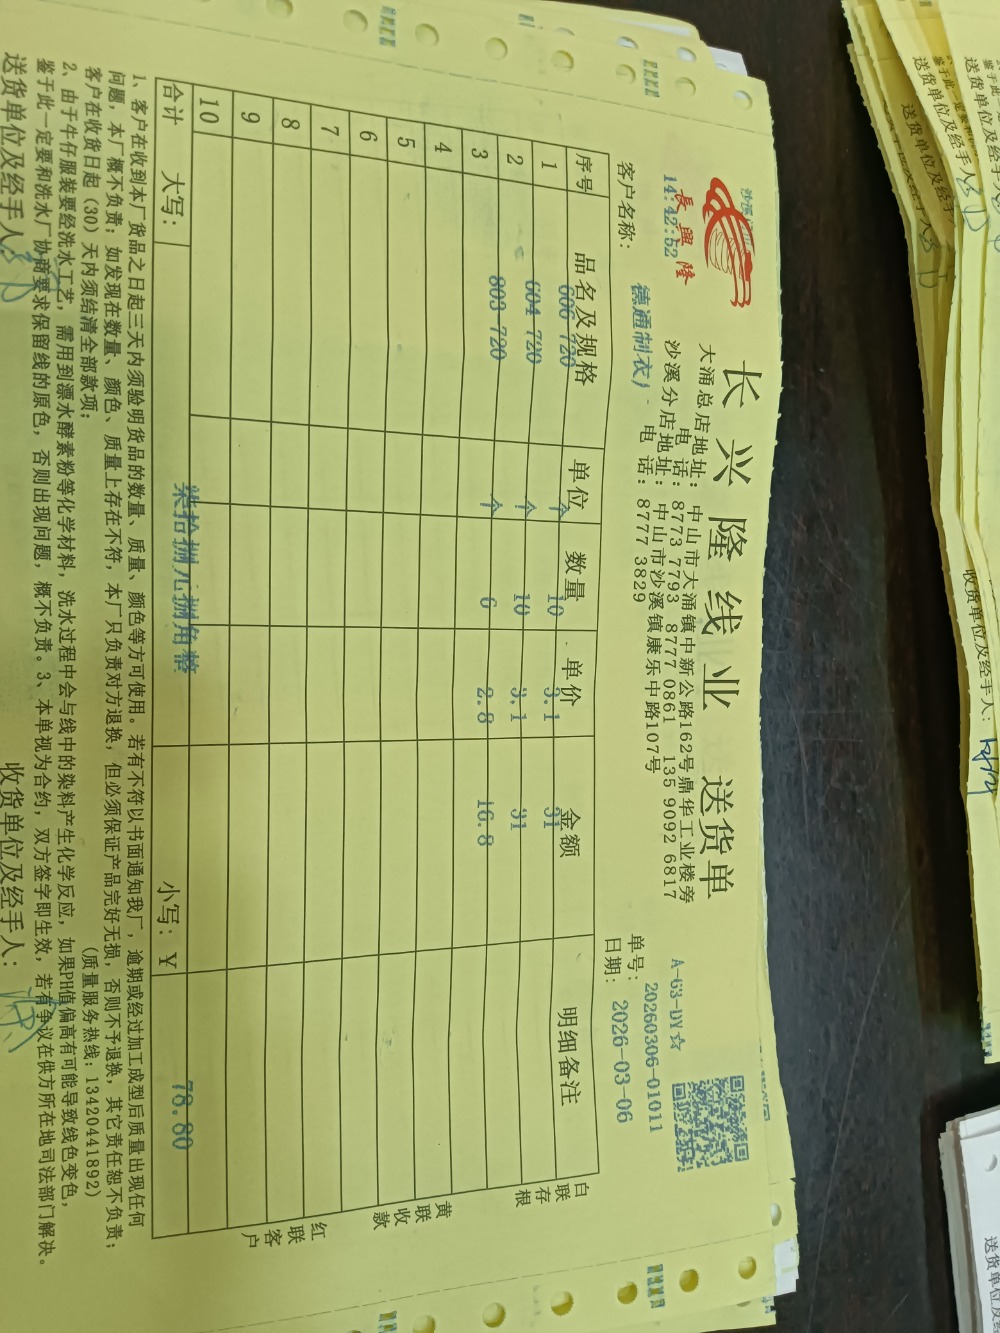 长兴隆线业 送货单
長興隆
14:42:52
大涌总店地址：中山市大涌镇中新公路162号鼎华工业楼旁
电 话：8773 7793 8777 0861 135 9092 6817
沙溪分店地址：中山市沙溪镇康乐中路107号
电 话：8777 3829
A-G3-DY☆
单号：20260306-01011
日期：2026-03-06
客户名称：德通制衣）
序号 品名及规格 单位 数量 单价 金额 明细备注
1 606 720 个 10 3.1 31
2 604 720 个 10 3.1 31
3 803 720 个 6 2.8 16.8
4
5
6
7
8
9
10
合计 大写：柒拾捌元捌角整 小写：¥ 78.80
白联存根
黄联收款
红联客户
1、客户在收到本厂货品之日起三天内须验明货品的数量、质量、颜色等方可使用。若有不符以书面通知我厂，逾期或经过加工成型后质量出现任何
问题，本厂概不负责；如发现在数量、颜色、质量上存在不符，本厂只负责对方退换，但必须保证产品完好无损，否则不予退换，其它责任恕不负责；
客户在收货日起（30）天内须结清全部款项； （质量服务热线：13420441892）
2、由于牛仔服装要经洗水工艺，需用到漂水酵素粉等化学材料，洗水过程中会与线中的染料产生化学反应，如果PH值偏高有可能导致线色变色，
鉴于此一定要和洗水厂协商要求保留线的原色，否则出现问题，概不负责。3、本单视为合约，双方签字即生效，若有争议在供方所在地司法部门解决。
送货单位及经手人：
收货单位及经手人：
送货单位及经手人
送货单位及经手人
送货单位及经手人
收货单位及经手人：
送货单位及经